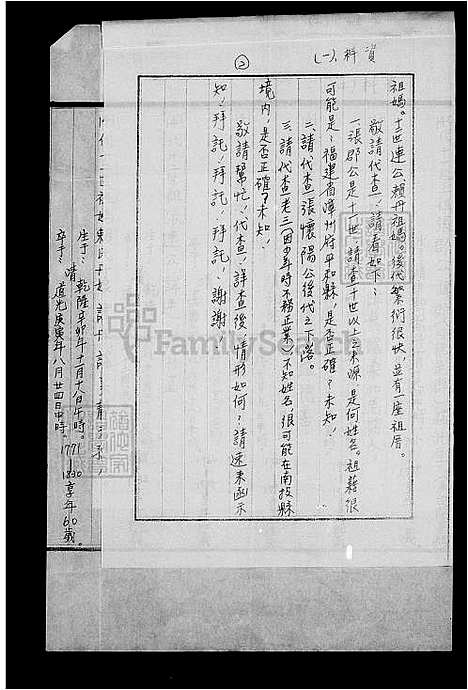 資料(一)
②
祖媽。十二世連公賴丹祖媽。後代繁衍很快,並有一座祖厝。
敬請代查,請看如下:
一張郡公是十一世,請查十世以上之來源,是何姓名。祖籍很
可能是:福建省漳州府平和縣,是否正確?未知!
二、請代查張懷陽公後代之下落。
三、請代查老三(因少年時不務正業)不知姓名,很可能在南投縣
境內,是否正確?未知!
敬請幫忙!代查!詳查後,情形如何?請速來函示
知!拜託!拜託!拜託!謝謝!
生于:乾隆辛卯年十月十八日午時。1771
卒于:清道光庚寅年八月廿四日申時。1830享年60歲。
FamilySearch